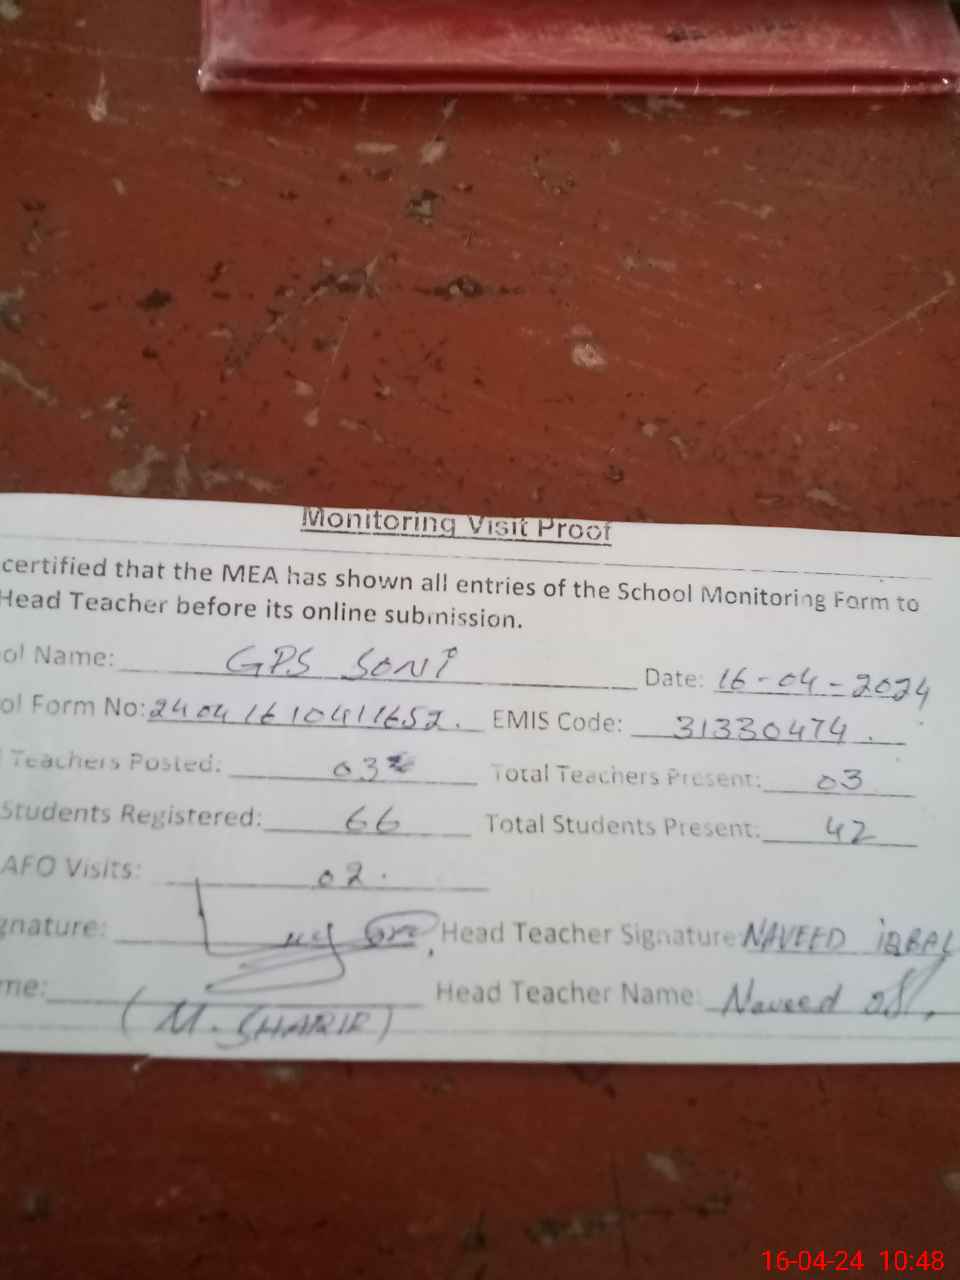 Monitoring Visit Proof
certified that the MEA has shown all entries of the School Monitoring Form to
Head Teacher before its online submission.
ol Name: GPS SONI Date: 16-04-2024
ol Form No: 24041610411652. EMIS Code: 31330474.
Teachers Posted: 03 Total Teachers Present: 03
Students Registered: 66 Total Students Present: 42
AFO Visits: 02.
gnature: Head Teacher Signature: NAVEED IQBAL
me: Head Teacher Name: Naveed
(M. SHARIF)
16-04-24 10:48